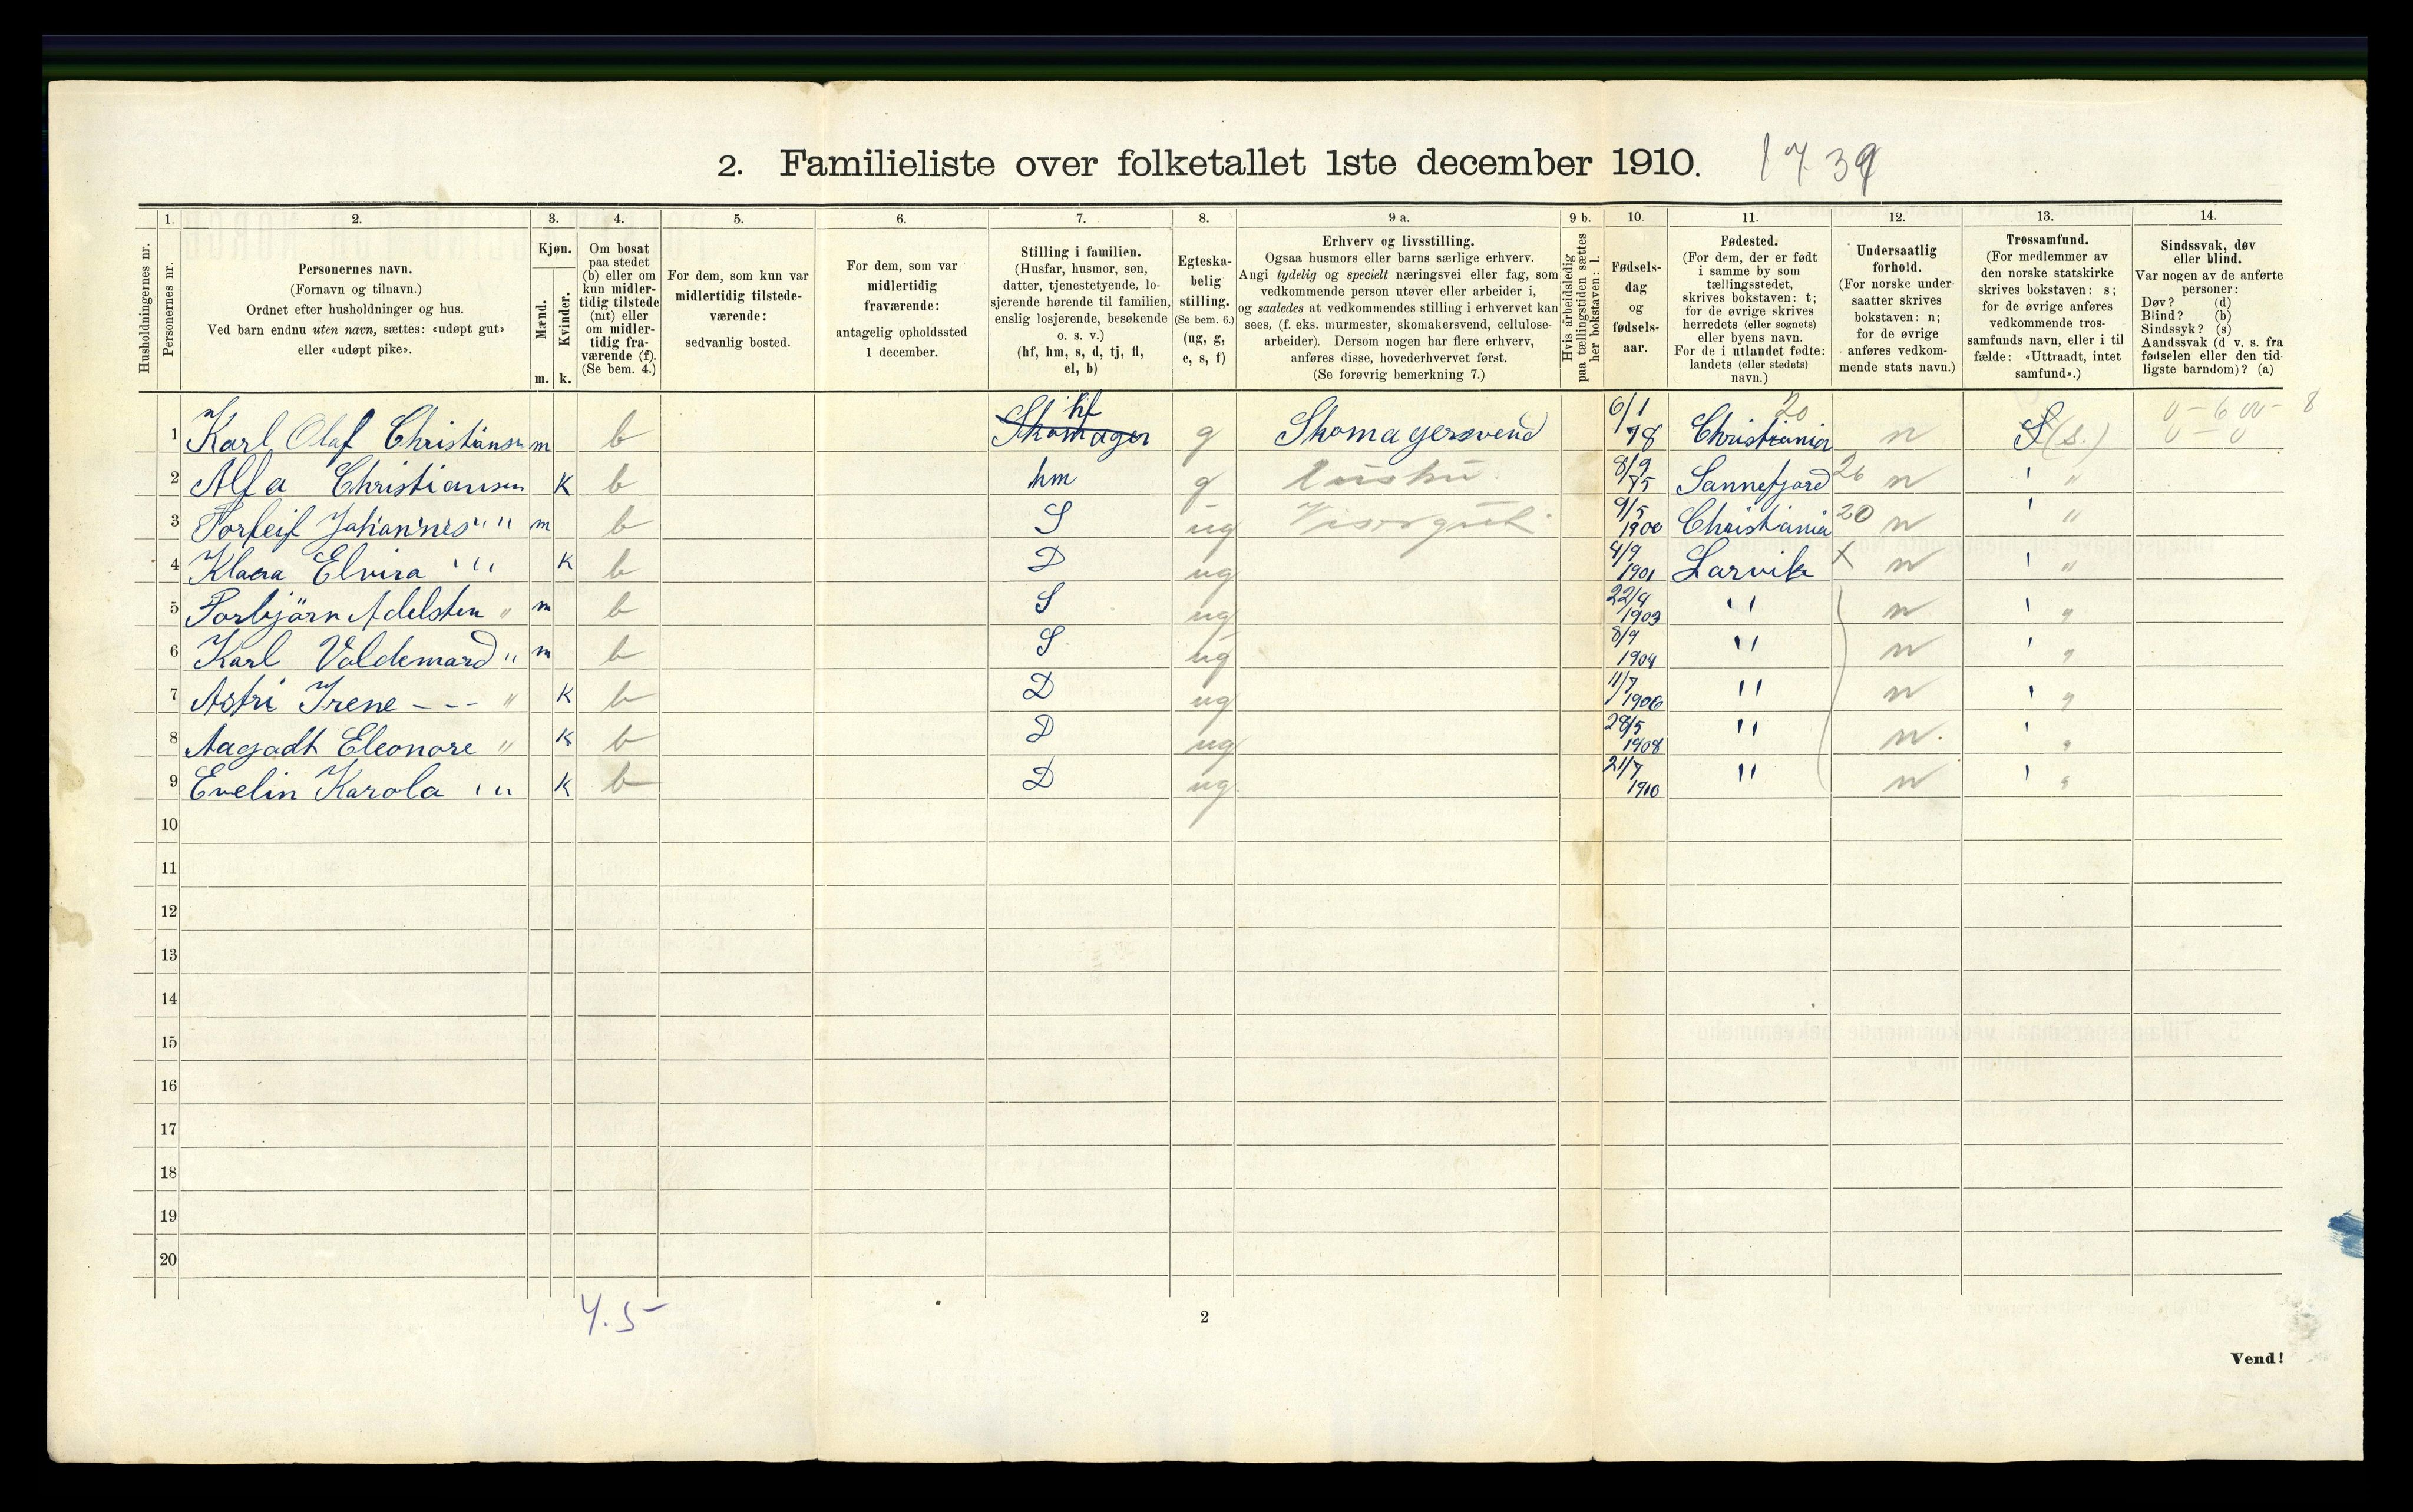 2. Familieliste over folketallet 1ste december 1910. 1739
1. 2. 3. 4. 5. 6. 7. 8. 9 a. 9 b. 10. 11. 12. 13. 14.
Husholdningernes nr.
Personernes nr.
Personernes navn.
(Fornavn og tilnavn.)
Ordnet efter husholdninger og hus.
Ved barn endnu uten navn, sættes: «udøpt gut»
eller «udøpt pike».
Kjøn.
Mænd.
Kvinder.
m. k.
Om bosat
paa stedet
(b) eller om
kun midler-
tidig tilstede
(mt) eller
om midler-
tidig fra-
værende (f).
(Se bem. 4.)
For dem, som kun var
midlertidig tilstede-
værende:
sedvanlig bosted.
For dem, som var
midlertidig
fraværende:
antagelig opholdssted
1 december.
Stilling i familien.
(Husfar, husmor, søn,
datter, tjenestetyende, lo-
sjerende hørende til familien,
enslig losjerende, besøkende
o. s. v.)
(hf, hm, s, d, tj, fl,
el, b)
Egteska-
belig
stilling.
(Se bem. 6.)
(ug, g,
e, s, f)
Erhverv og livsstilling.
Ogsaa husmors eller barns særlige erhverv.
Angi tydelig og specielt næringsvei eller fag, som
vedkommende person utøver eller arbeider i,
og saaledes at vedkommendes stilling i erhvervet kan
sees, (f. eks. murmester, skomakersvend, cellulose-
arbeider). Dersom nogen har flere erhverv,
anføres disse, hovederhvervet først.
(Se forøvrig bemerkning 7.)
Hvis arbeidsledig
paa tællingstiden sættes
her bokstaven: l.
Fødsels-
dag
og
fødsels-
aar.
Fødested.
(For dem, der er født
i samme by som
tællingsstedet,
skrives bokstaven: t;
for de øvrige skrives
herredets (eller sognets)
eller byens navn.
For de i utlandet fødte:
landets (eller stedets)
navn.)
Undersaatlig
forhold.
(For norske under-
saatter skrives
bokstaven: n;
for de øvrige
anføres vedkom-
mende stats navn.)
Trossamfund.
(For medlemmer av
den norske statskirke
skrives bokstaven: s;
for de øvrige anføres
vedkommende tros-
samfunds navn, eller i til
fælde: «Uttraadt, intet
samfund».)
Sindssvak, døv
eller blind.
Var nogen av de anførte
personer:
Døv? (d)
Blind? (b)
Sindssyk? (s)
Aandssvak (d. v. s. fra
fødselen eller den tid-
ligste barndom)? (a)
1 Karl Olaf Christiansen m b Skomager hf g Skomagersvend 6/1 78 Christiania 20 n S (s.)
2 Alfa Christiansen K b hm g 8/9 75 Sannefjord 20 n ' "
3 Torleif Johannes " " m b S ug Visergut 9/5 1900 Christiania 20 n ' "
4 Klara Elvira ' " K b D ug 4/9 1901 Larvik X n ' "
5 Torbjörn Adelsten " m b S ug 22/4 1903 " n ' "
6 Karl Valdemard " m b S ug 8/9 1904 " n ' "
7 Astri Irene - - - " K b D ug 11/7 1906 " n ' "
8 Aagadt Eleonore " K b D ug 28/5 1908 " n. ' "
9 Evelin Karola ' " K b D ug. 21/7 1910 " n ' "
10
11
12
13
14
15
16
17
18
19
20
4.5
2
Vend!